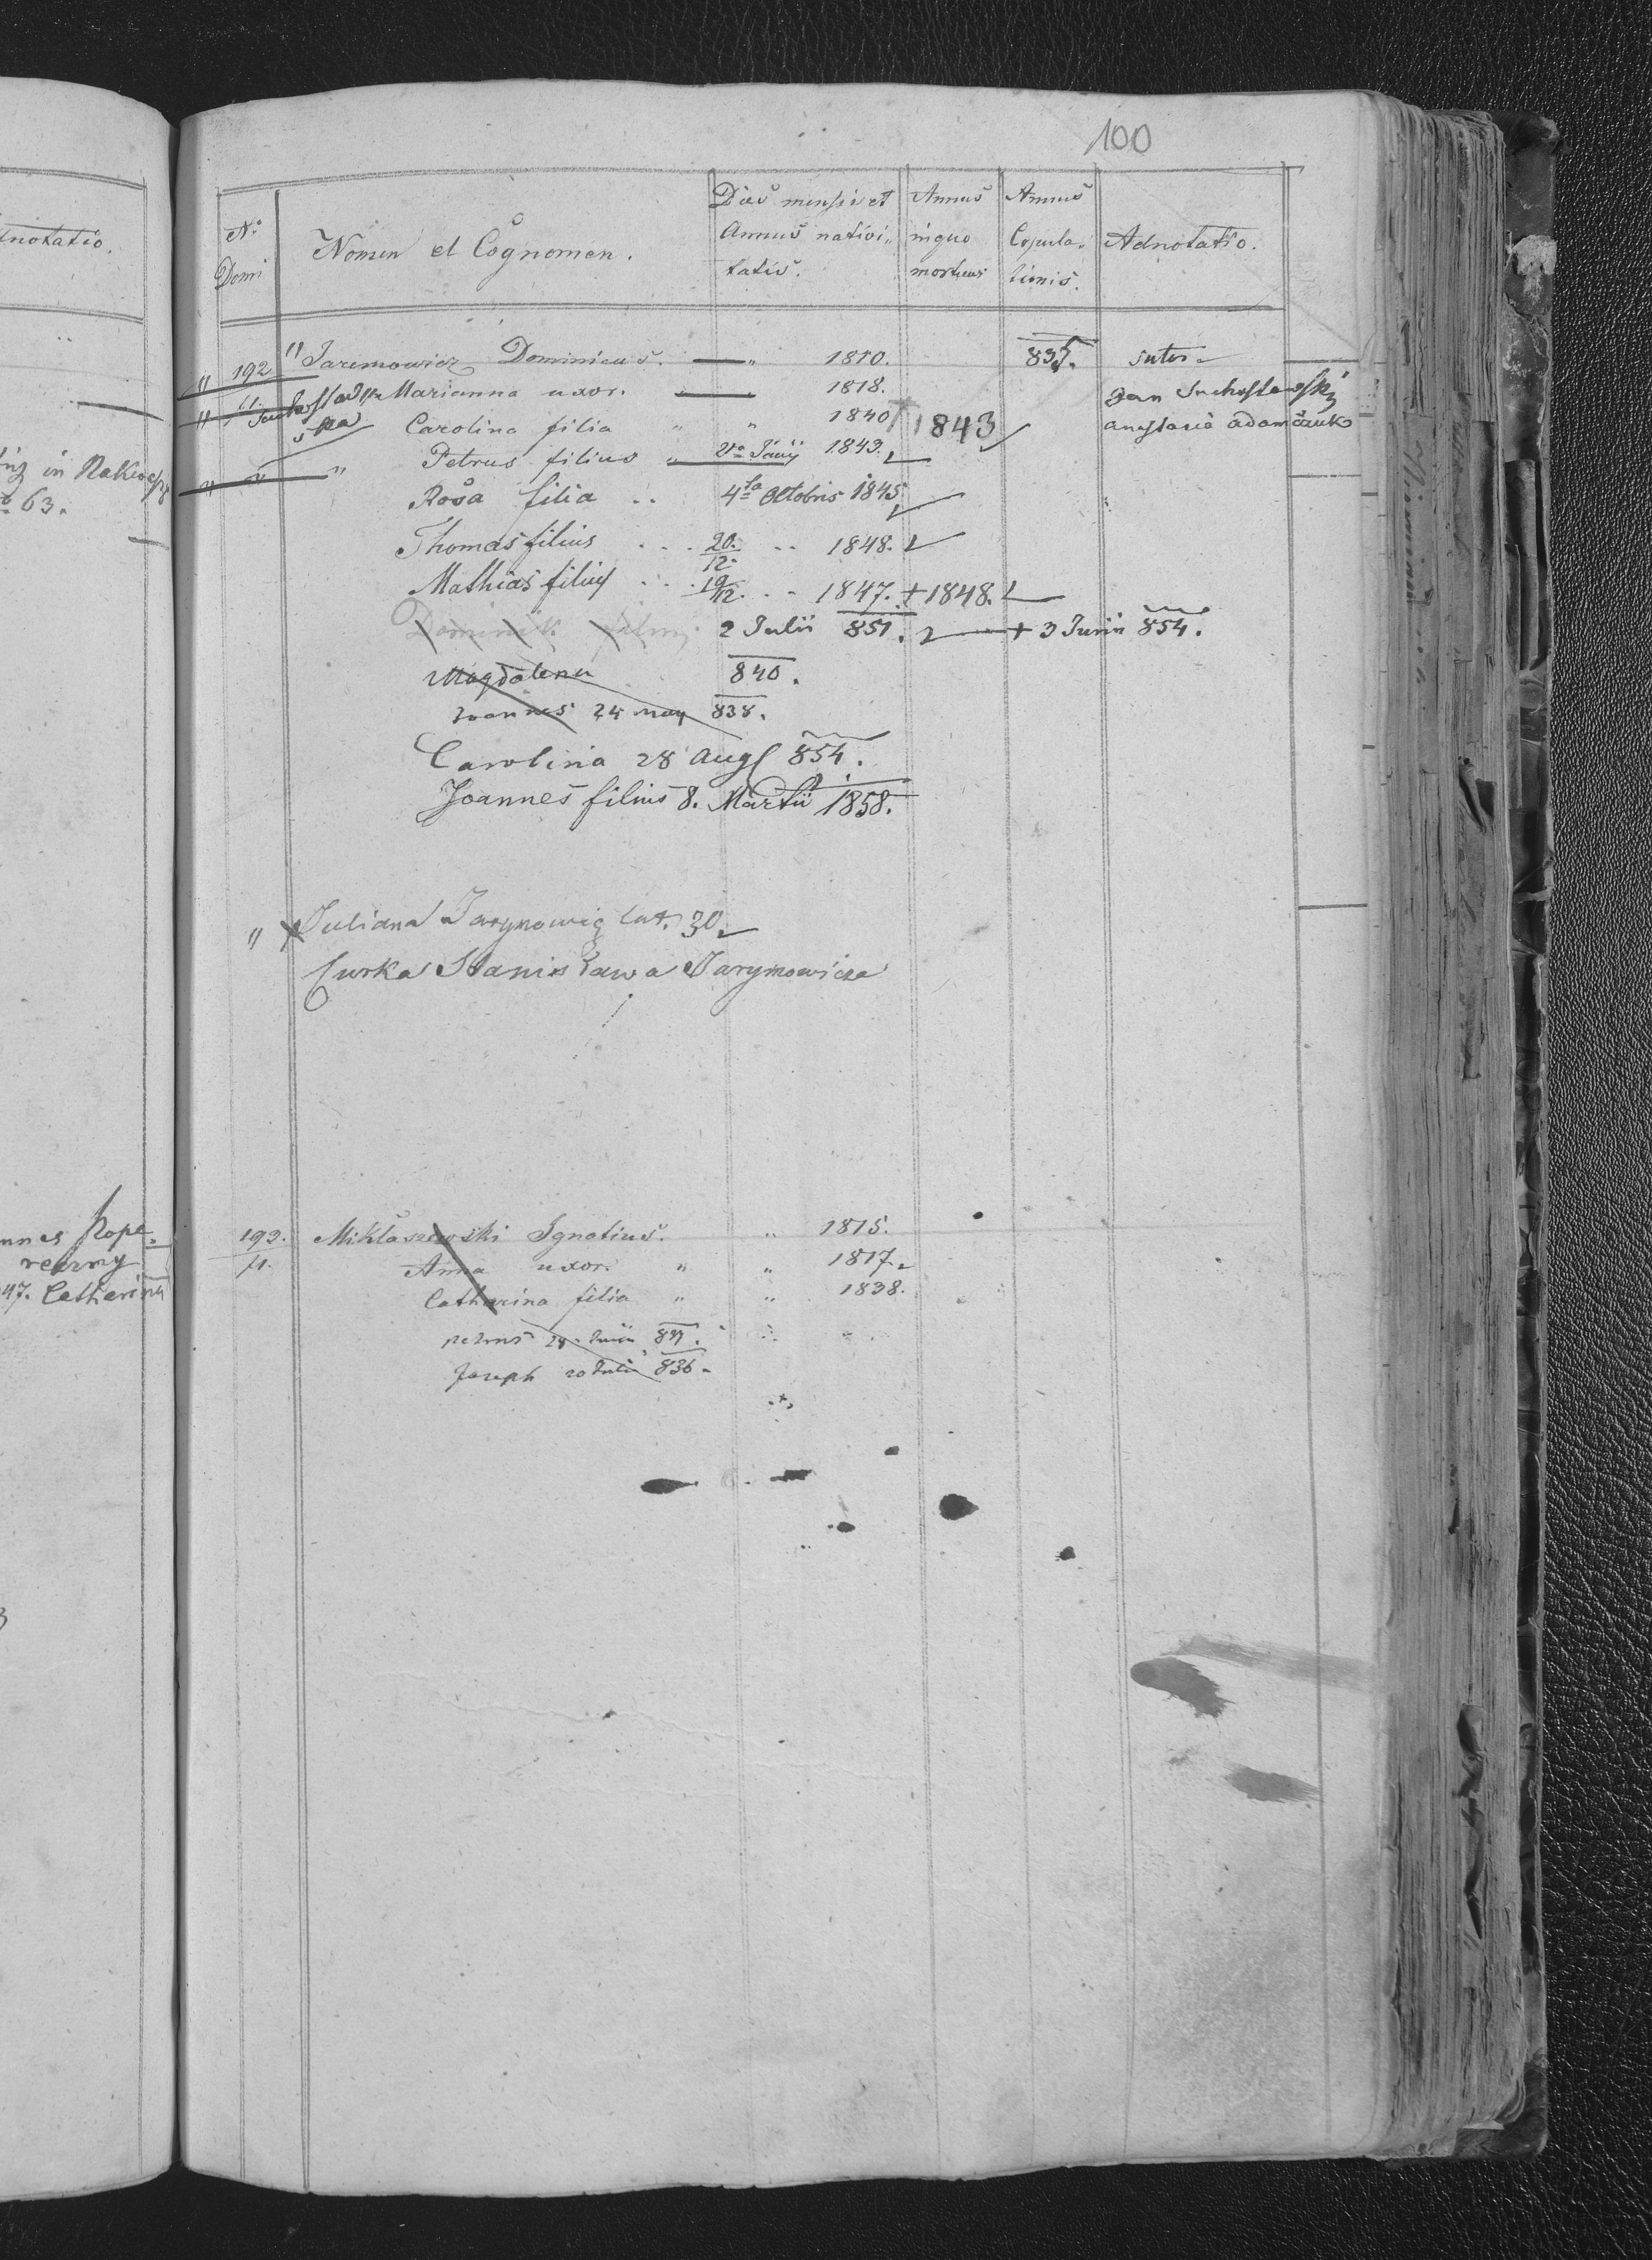 100
Nº Domi
Nomen et Cognomen.
Dies mensis et Annus nativi„ tatis.
Annus inquo mortuus
Annus Copula„ tionis.
Adnotatio.
notatio.
192 Jaremowicz Dominicus. — „ 1810. 835. sutor
Marianna uxor. „ — 1818. Jan Suchosławski
Carolina filia „ „ 1840 † 1843 Anastasia Adamczuk
Petrus filius „ 1843.
Rosa filia .. 4ta Octobris 1845.
Thomas filius . . . 20./12. .. 1848.
Mathias filius . . . 19/12. . . 1847. + 1848.
Dominik filius 2 Julii 851. + 3 Junii 854.
Magdalena 840.
Joannes 24 may 838.
Carolina 28 Augs 854.
Joannes filius 8. Martii 1858.
„ Juliana Jarymowicz lat. 30
Curka Stanisława Jarymowicza
193. Miklaszewski Ignatius. „ 1815.
Anna uxor. „ „ 1817.
Catharina filia „ „ 1838.
petrus Junii
Joseph 20 Julii 836.
in Rakow
63.
47. Catherina